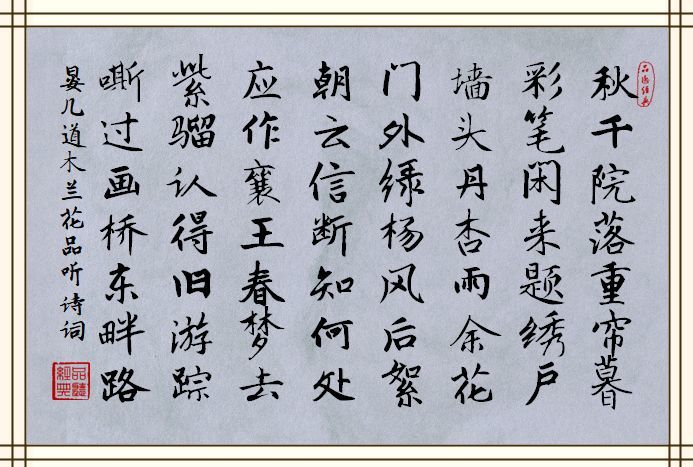 秋千院落重帘暮
彩笔闲来题绣户
墙头丹杏雨余花
门外绿杨风后絮
朝云信断知何处
应作襄王春梦去
紫骝认得旧游踪
嘶过画桥东畔路
晏几道木兰花品听诗词